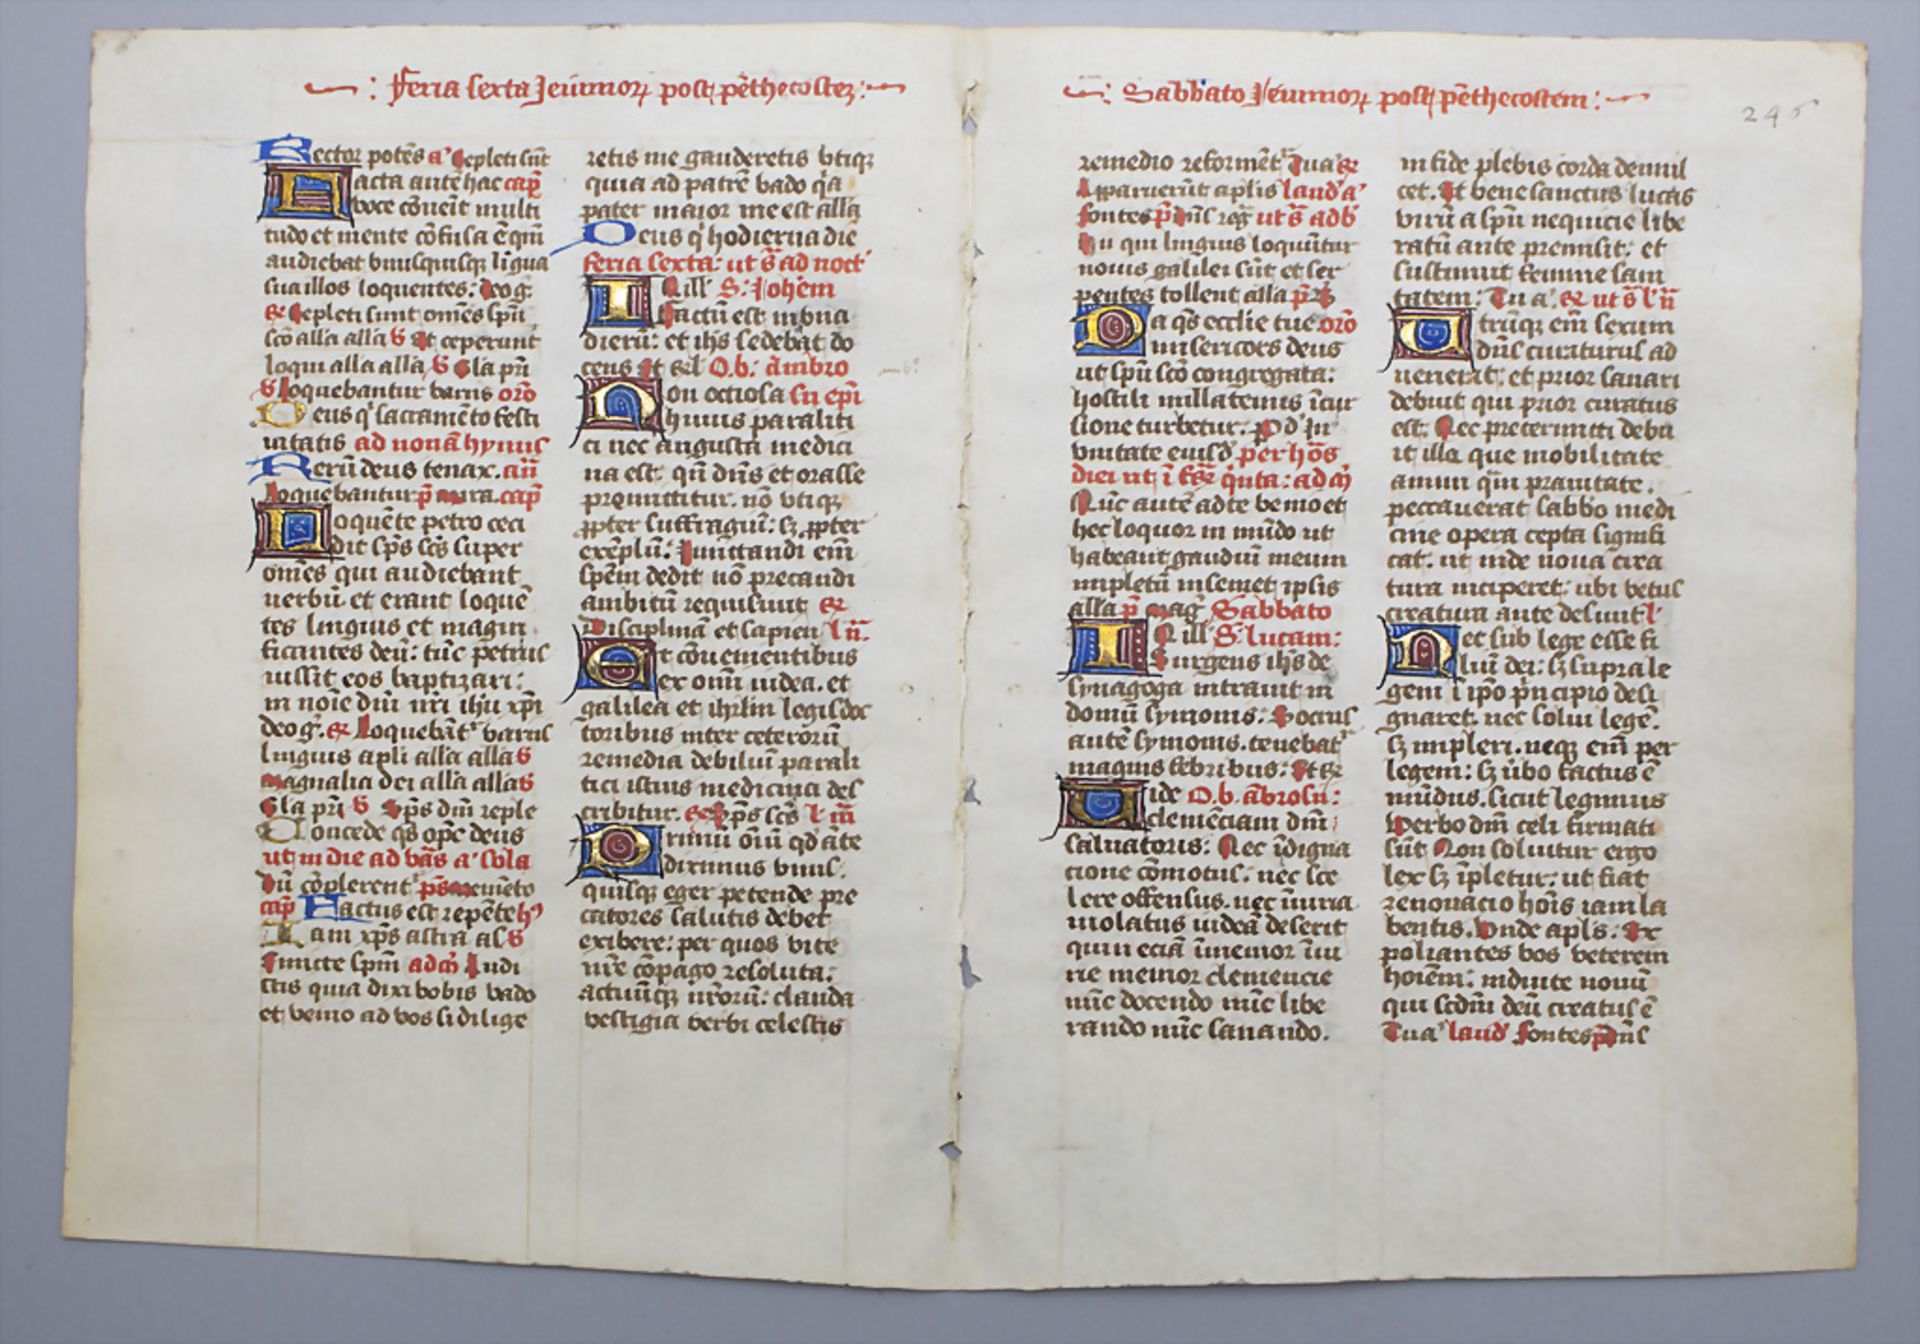 Feria sexta Jeiunioꝝ post pēthecostez
Rector potēs a' Repleti sūt
Facta autē hac cap̄
voce cōuenit multi
tudo et mente cōfusa ē qm̄
audiebat vnusquisqꝫ līgua
sua illos loquentes: Deo ḡ
Repleti sunt omēs spū
scō alla alla Et ceperunt
loqui alla alla Gla pr̄i
Loquebantur varijs orō
Deus q' sacramēto festi
uitatis ad nonā hymus
Rerū deus tenax. an̄
Loquebantur p̄ mīa. cap̄
Loquēte petro ceci
dit sp̄s scs̄ super
omēs qui audiebant
uerbū: et erant loquē
tes linguis et magni
ficantes deū: tūc petrus
iussit eos baptizari:
in noīe dn̄i nr̄i ihu xp̄i
deo ḡ. Loquebāt' varijs
linguis apli alla alla
magnalia dei alla alla
Gla pr̄i Sp̄s dn̄i reple
Concede qs̄ op̄c deus
ut in die ad vās a' Sola
Dū cōplerent' ps̄
cap̄ Factus est repēte hy
Iam xp̄s astra as
Suncte spm̄ ad m̄ Audi
stis quia dixi vobis vado
et venio ad vos si dilige
retis me gauderetis vtiqꝫ
quia ad patrē vado q̄a
pater maior me est alla
Deus q' hodierna die
feria sexta: ut s̄ ad noct'
In ill' S: Johem
Factū est in vna
dierū: et ihs sedebat do
cens Et rel O.b: ambro
Non ociosa su epī
huius paraliti
ci nec angusta medici
na est. qn̄ dn̄s et orasse
premittitur. nō vtiqꝫ
ꝓpter suffragiū: sꝫ ꝓpter
exēplū: Imitandi em̄
spēm dedit nō precandi
ambitū requisiuit
Disciplinā et sapien l' ii.
Et cōuenientibus
ex omi iudea. et
galilea et ihrlm legis doc
toribus inter ceterorū
remedia debiliū parali
tici istius medicina des
cribitur. Sp̄s scs̄ l' iii
Primū oīm qd āte
diximus vnus
quisqꝫ eger petende pre
catores salutis debet
exibere: per quos vite
nr̄e cōpago resoluta:
actuūqꝫ nr̄orū: clauda
vestigia verbi celestis
Sabbato Jeiunioꝝ post pēthecostem
246
remedio reformēt' Tua
Apparuerūt aplis laud' a'
fontes ut s̄ ad b'
Hij qui linguis loquūtur
nouis galilei sūt et ser
pentes tollent alla
Da qs̄ ecclie tue orō
misericors deus
ut spū scō congregata:
hostili nullatenus īcur
sione turbetur: P d' in
vnitate eiusd' per hōs
diei ut ī q̄nta: ad m̄
Nūc autē ad te venio et
hec loquor in mūdo ut
habeant gaudiū meum
impletū in semet ipsis
alla p̄ mag' Sabbato
In ill' S: lucam:
Surgens ihs de
synagoga intrauit in
domū symonis: Socrus
autē symonis. tenebat'
magnis febribus: Et
Vide O.b. abrosii:
clemēciam dn̄i
saluatoris: Nec īdigna
cione cōmotus: nec sce
lere offensus. nec iniuria
violatus iudeā deserit
quin eciā īmemor īiu
rie memor clemencie
nūc docendo nūc libe
rando nūc sanando.
infide plebis corda demul
cet. Et bene sanctus lucas
virū a spū nequicie libe
ratū ante premisit: et
sustinuit femine sani
tatem: Tu a' ut s̄ l' ii
Utrūqꝫ em̄ sexum
dn̄s curaturus ad
uenerat: et prior sanari
debuit qui prior curatus
est. Nec pretermitti debu
it illa que mobilitate
animi q̄m prauitate.
peccauerat sabbo medi
cine opera cepta signifi
cat. ut inde noua crea
tura inciperet: ubi vetus
creatura ante desiuit l'
Net sub lege esse fi
lium dei: sꝫ supra le
gem ī ipō p̄ncipio desi
gnaret. nec solui legē.
sꝫ impleri. neqꝫ em̄ per
legem: sꝫ vbo factus ē
mūdus. sicut legimus
Verbo dn̄i celi firmati
sūt Non soluitur ergo
lex sꝫ īpletur: ut fiat
renouacio hoīs iam la
bentis. Vnde apls: Ex
poliantes vos veterem
hoīem: induite nouū
qui scdm̄ deū creatus ē
Tua' laud' fontes